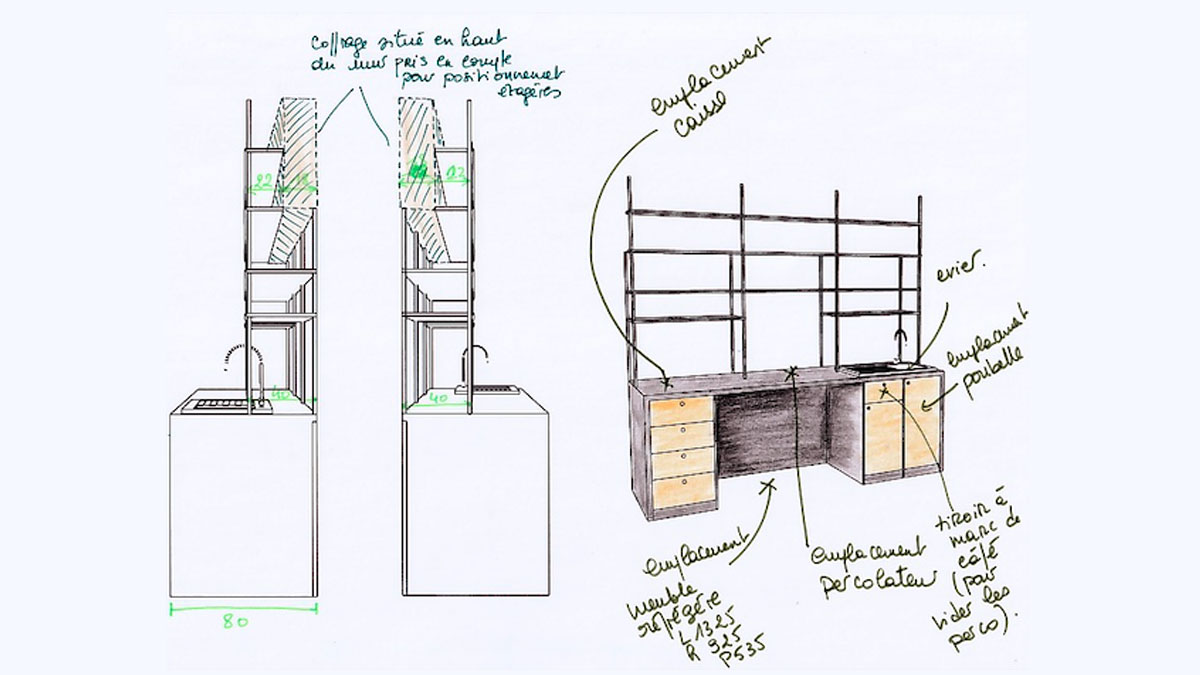 Coffrage situé en haut
du mur pris en compte
pour positionnement
étagères
22
22
40
40
80
emplacement
caisse
evier.
emplacement
poubelle
emplacement
meuble
réfrigéré
L1325
R 925
P535
emplacement
percolateur
tiroir à
marc de
café
(pour
vider les
perco).